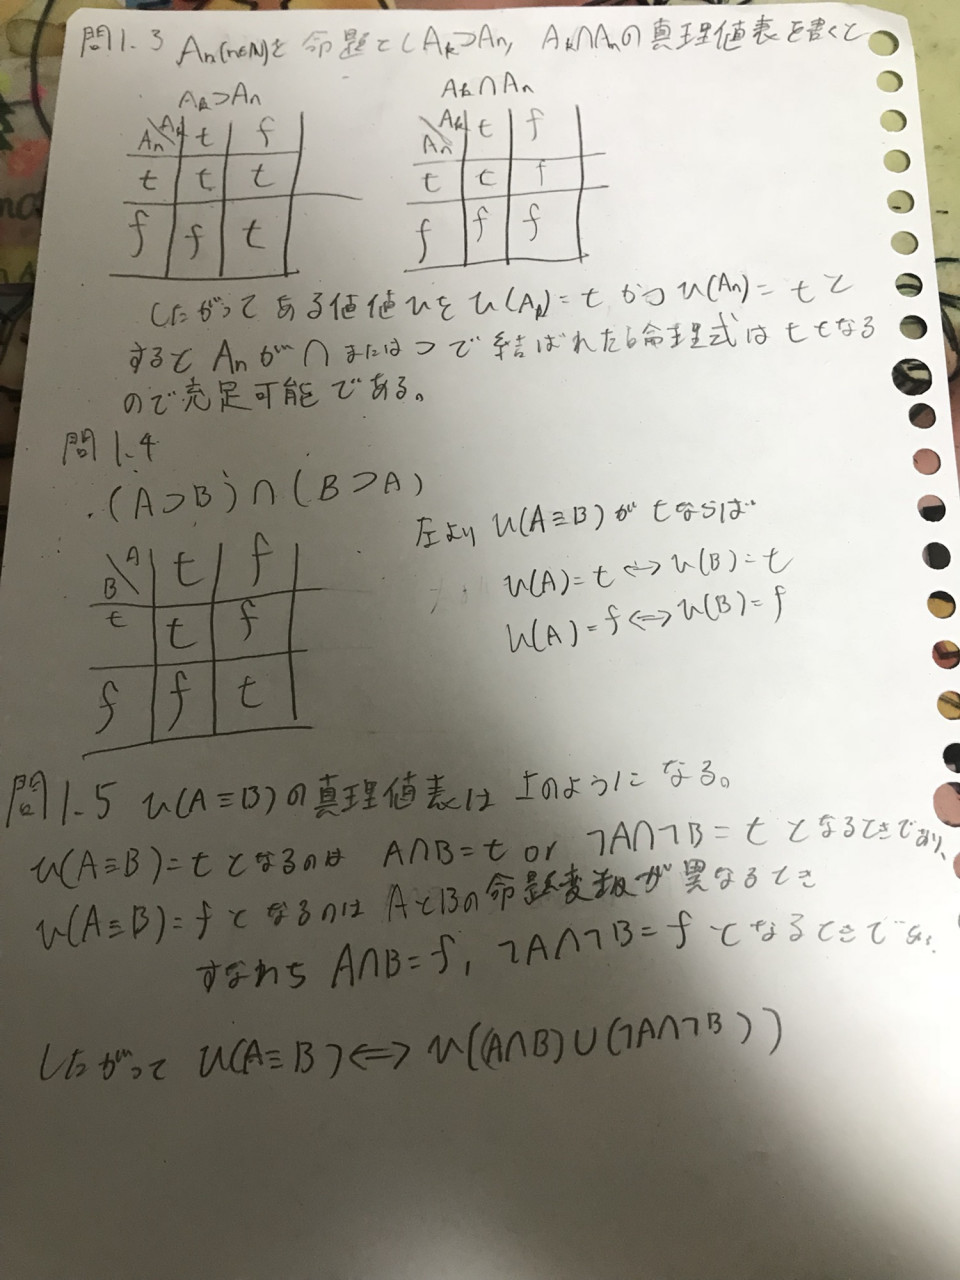 問1.3 An(n∈N)を命題とし Ak⊃An, Ak∩Anの真理値表を書くと
Ak⊃An
An\Ak t f
t t t
f f t
Ak∩An
An\Ak t f
t t f
f f f
したがってある値値uをu(Ak)=tかつu(An)=tと
するとAnが∩または⊃で結ばれた命理式はtとなる
ので充足可能である。
問1.4
(A⊃B)∩(B⊃A)
B\A t f
t t f
f f t
左よりu(A≡B)がtならば
u(A)=t⇔u(B)=t
u(A)=f⇔u(B)=f
問1.5 u(A≡B)の真理値表は上のようになる。
u(A≡B)=tとなるのは A∩B=t or ¬A∩¬B=tとなるときであり、
u(A≡B)=fとなるのはAとBの命題変数が異なるとき
すなわち A∩B=f, ¬A∩¬B=fとなるときであ
したがって u(A≡B)⇔u((A∩B)∪(¬A∩¬B))